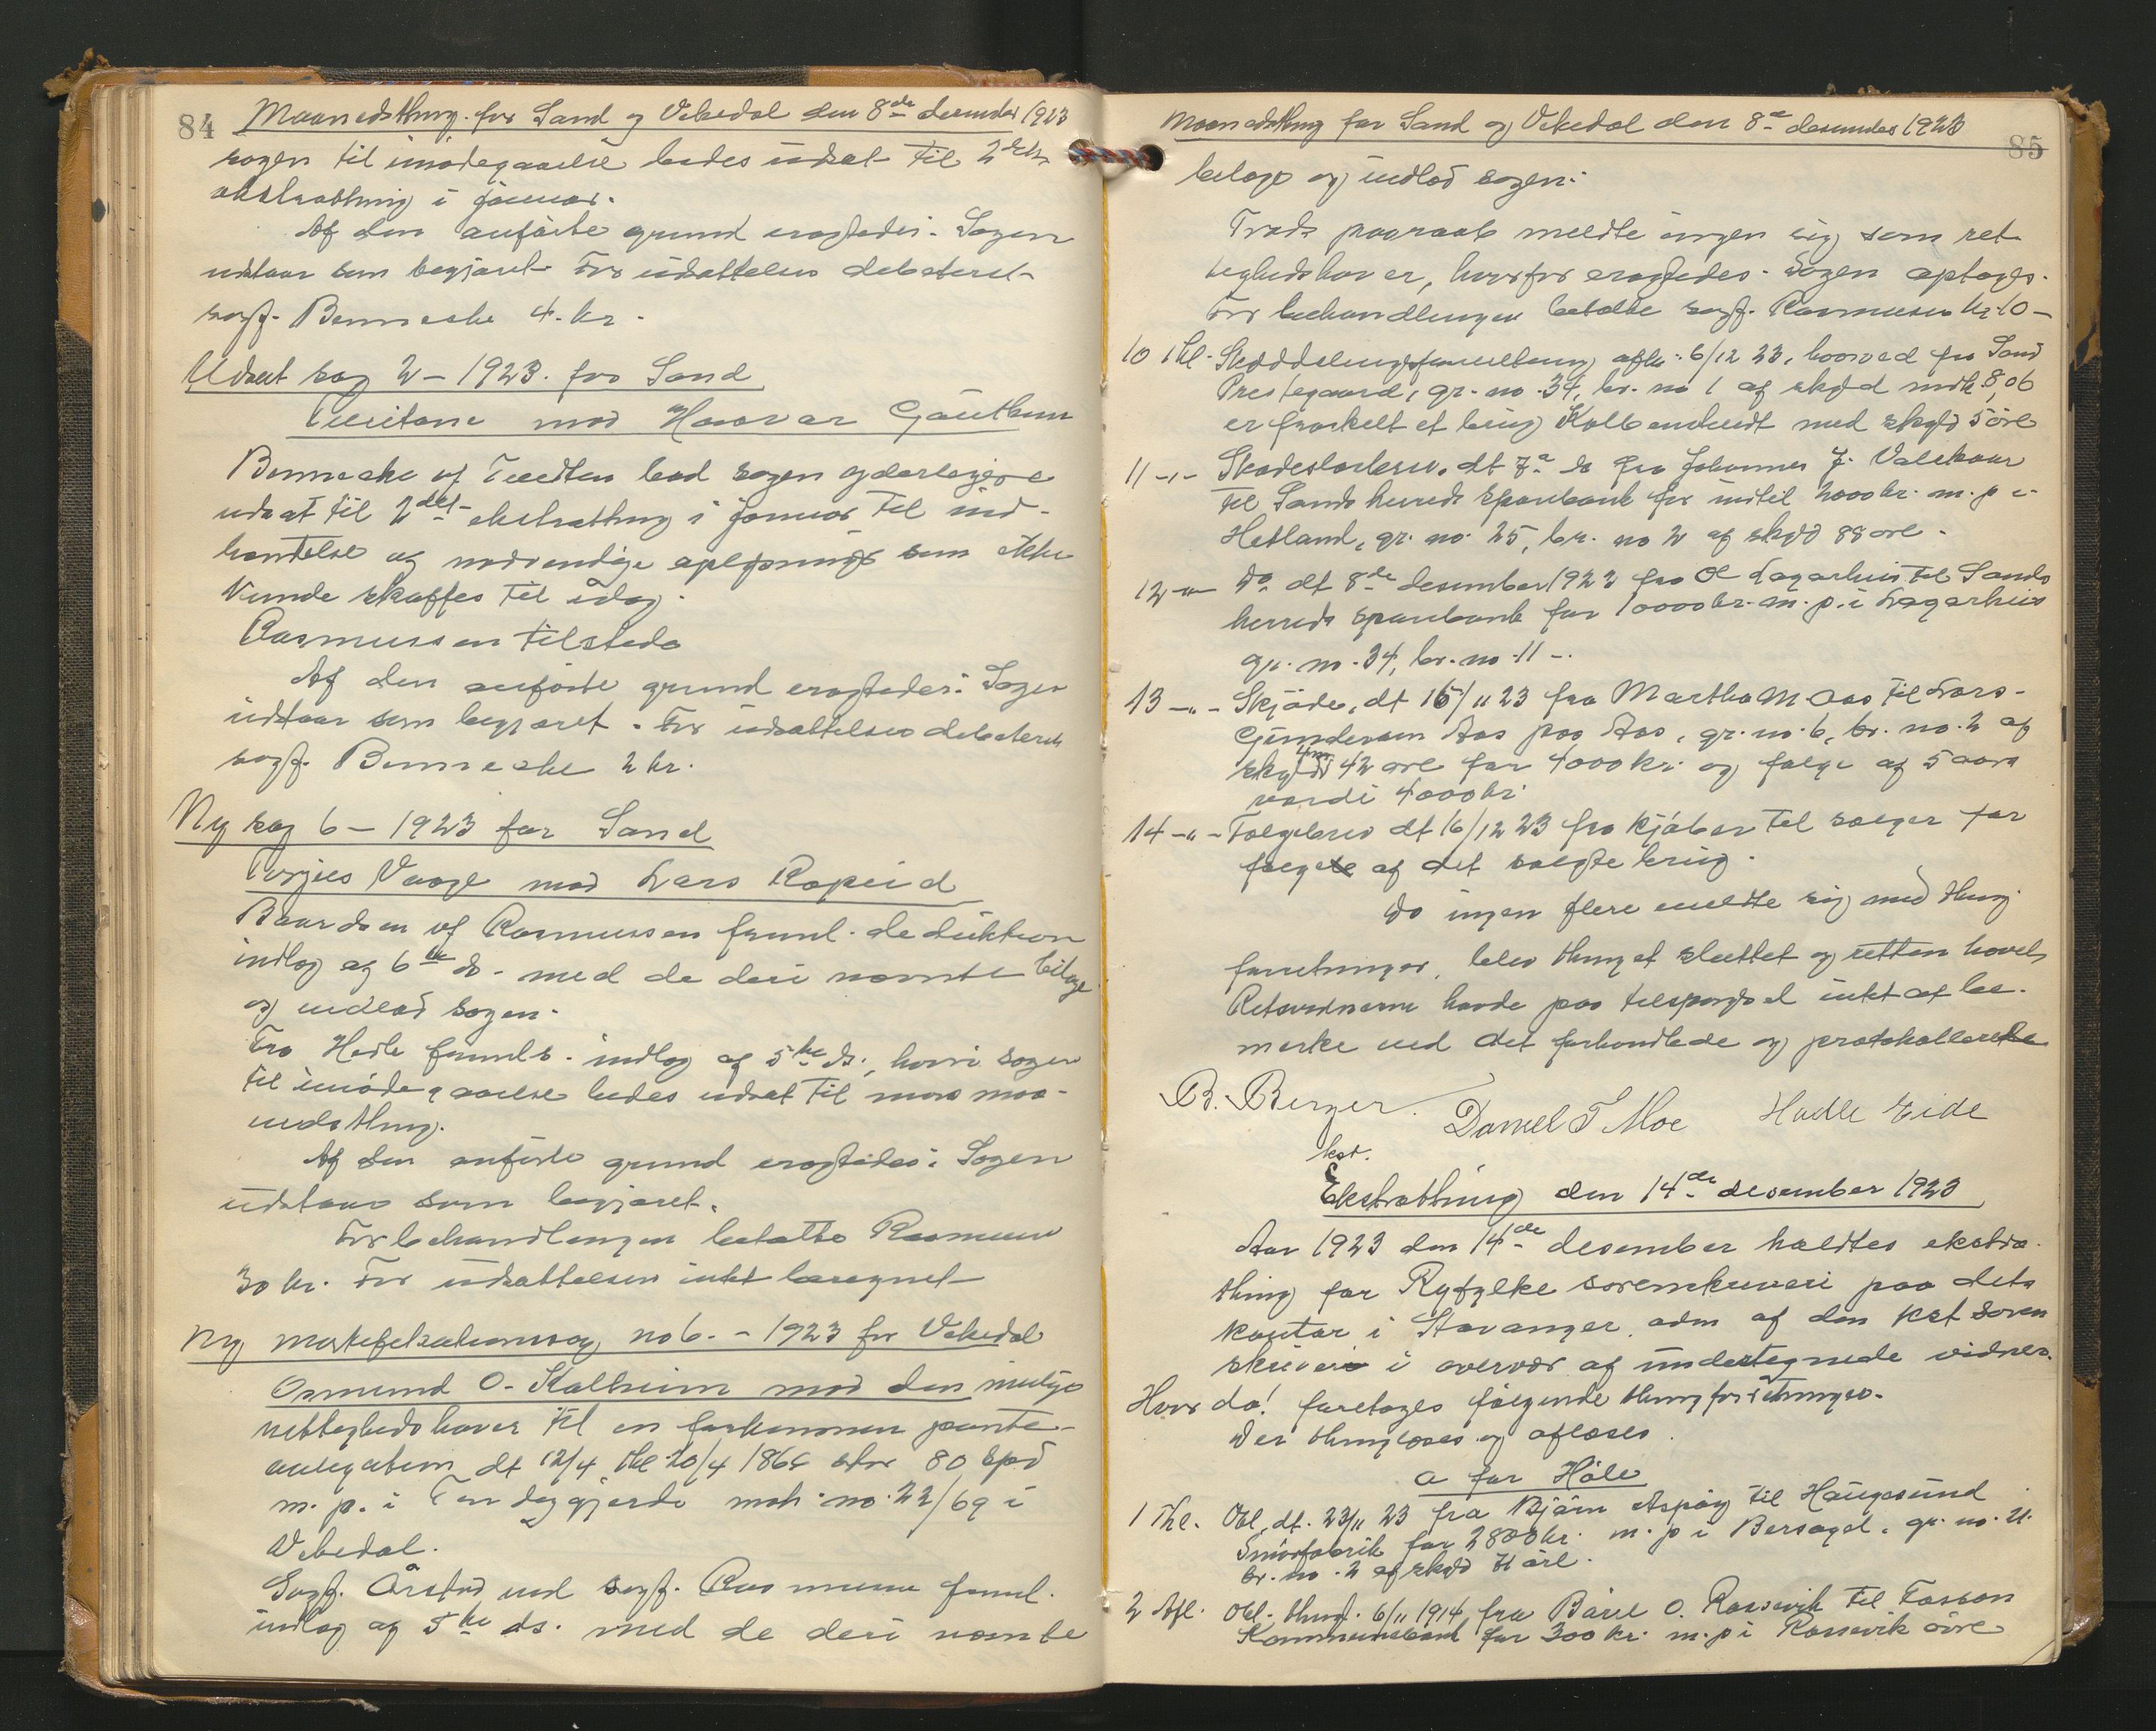 84 Maanedsthing for Sand og Vikedal den 8de desember 1923
sagen til imødegaaelse bedes udsat til 2det
ekstrathing i januar.
Af den anførte grund eragtedes: Sagen
udstaar som begjæret. For udsættelsen debiteret
sagf. Bennecke 4. kr.
Udsat sag 2 – 1923. for Sand
mod Haavar
Bennecke vf Tvedten bad sagen yderligere
udsat til 2det ekstrathing i januar til ind-
hentelse af nødvendige oplysninger som ikke
kunde skaffes til idag.
Rasmussen tilstede
Af den anførte grund eragtedes: Sagen
udstaar som begjæret. For udsættelsen debiteret
sagf. Bennecke 2 kr.
Ny sag 6 – 1923 for Sand
Torjus Vaage mod Lars Ropeid
Baardsen vf Rasmussen freml. deduktion
indlæg af 6te ds. med de deri nævnte bilage
og indlod sagen.
Fra Hesle fremls. indlæg af 5te ds., hvori sagen
til imødegaaelse bedes udsat til næste maa-
nedsthing.
Af den anførte grund eragtedes: Sagen
udstaar som begjæret.
For behandlingen betalte Rasmussen
30 kr. For udsættelsen intet beregnet
Ny mortifikationssag no 6. – 1923 for Vikedal
Osmund O. Kalheim mod den mulige
rettighedshaver til en forkommen pante-
obligation dt 12/4 thl 20/4 1866 stor 80 spd
m. p. i matr. no. 22/69 i
Vikedal.
Sagf. Årstad ved sagf. Rasmussen freml.
indlæg af 5te ds. med de deri nævnte
Maanedsthing for Sand og Vikedal den 8de desember 1923
85
bilage og indlod sagen.
Trods paaraab meldte ingen sig som ret-
tighedshaver, hvorfor eragtedes: Sagen optages.
For behandlingen betalte sagf. Rasmussen kr 10 –
10 thl. Skylddelingsforretning afh. 6/12 23, hvorved fra Sand
Prestegaard, gr. no. 34, br. no 1 af skyld mrk 8,06
er fraskilt et brug med skyld 5 øre
11 –„– Skadesløsbrev. dt 7de ds fra Johannes J. Valskaar
til Sands herreds sparebank for indtil 2000 kr. m. p i
Hetland, gr. no. 25, br. no 2 af skyld 88 øre.
12 –„– Do dt 8de desember 1923 fra Ol Lagarhus til Sands
herreds sparebank for 10000 kr. m. p. i Lagarhus
gr. no. 34, br. no 11 –.
13 –„– Skjøde, dt 15/11 23 fra Martha M. Aas til Lars
Gundersen Aas paa Aas, gr. no. 6, br. no. 2 af
skyld 4 m 42 øre for 4000 kr. og følge af 5 aars
værdi 4000 kr.
14 –„– Følgebrev dt 16/12 23 fra kjøber til sælger for
følge af det solgte brug.
Da ingen flere meldte sig med thing-
forretninger, blev thinget sluttet og retten hævet.
Retsvidnerne havde paa tilspørgsel intet at be-
merke ved det forhandlede og protokollerede
B. Berger. Daniel T Moe Hadle Eide
kst.
Ekstrathing den 14de desember 1923
Aar 1923 den 14de desember holdtes ekstra-
thing for Ryfylke sorenskriveri paa dets
kontor i Stavanger, adm af den kst soren
skriver i overvær af undertegnede vidner.
Hvor da! foretages følgende thingforretninger.
Der thinglæses og aflæses.
a for Høle
1 Thl. Obl. dt. 23/11 23 fra Bjørn Aspøy til Haugesund
Smørfabrik for 2800 kr. m. p i Bersagel, gr. no. 21.
br. no. 2 af skyld 71 øre.
2 Afl. Obl. thingl. 6/11 1914, fra Båre O. Rossevik til Fossan
Kommunebank for 300 kr. m. p i Rossevik øvre